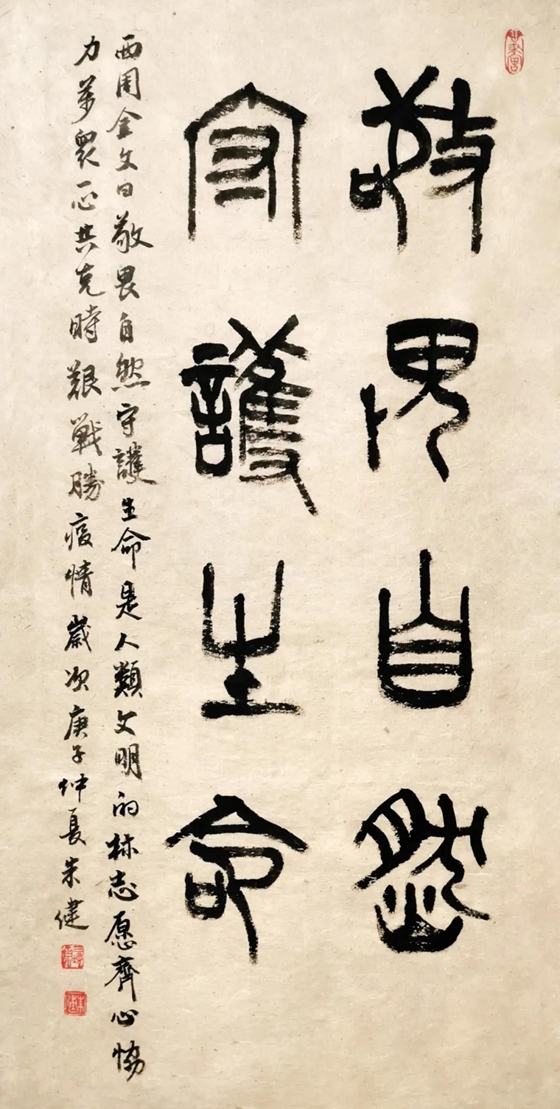 敬畏自然
守護生命
西周金文曰敬畏自然守護生命是人類文明的标志愿齊心恊
力萬衆一心共克時艱戰勝疫情歲次庚子仲夏朱健